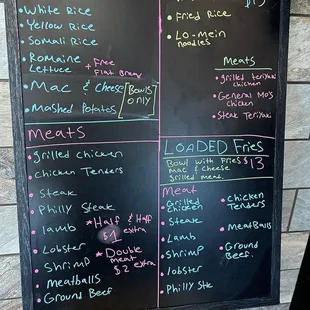 White Rice
Yellow Rice
Somali Rice
Romaine Lettuce
+ Free
Flat Bread
Mac & Cheese
Mashed Potatoes
Bowls
only
Fried Rice
Lo-mein
noodles
Meats
grilled teriyaki
chicken
General Mo's
Chicken
Steak Teriyaki
Meats
grilled chicken
Chicken Tenders
Steak
Philly Steak
lamb
Lobster
Shrimp
Meatballs
Ground Beef
*Half & Half
$1 extra
*Double
meat
$2 extra
LOADED Fries
Bowl with Fries $13
Mac & Cheese
grilled meat.
Meat
Grilled
Chicken
Steak
Lamb
Shrimp
lobster
Philly Stk
Chicken
Tenders
MeatBalls
Ground
Beef.